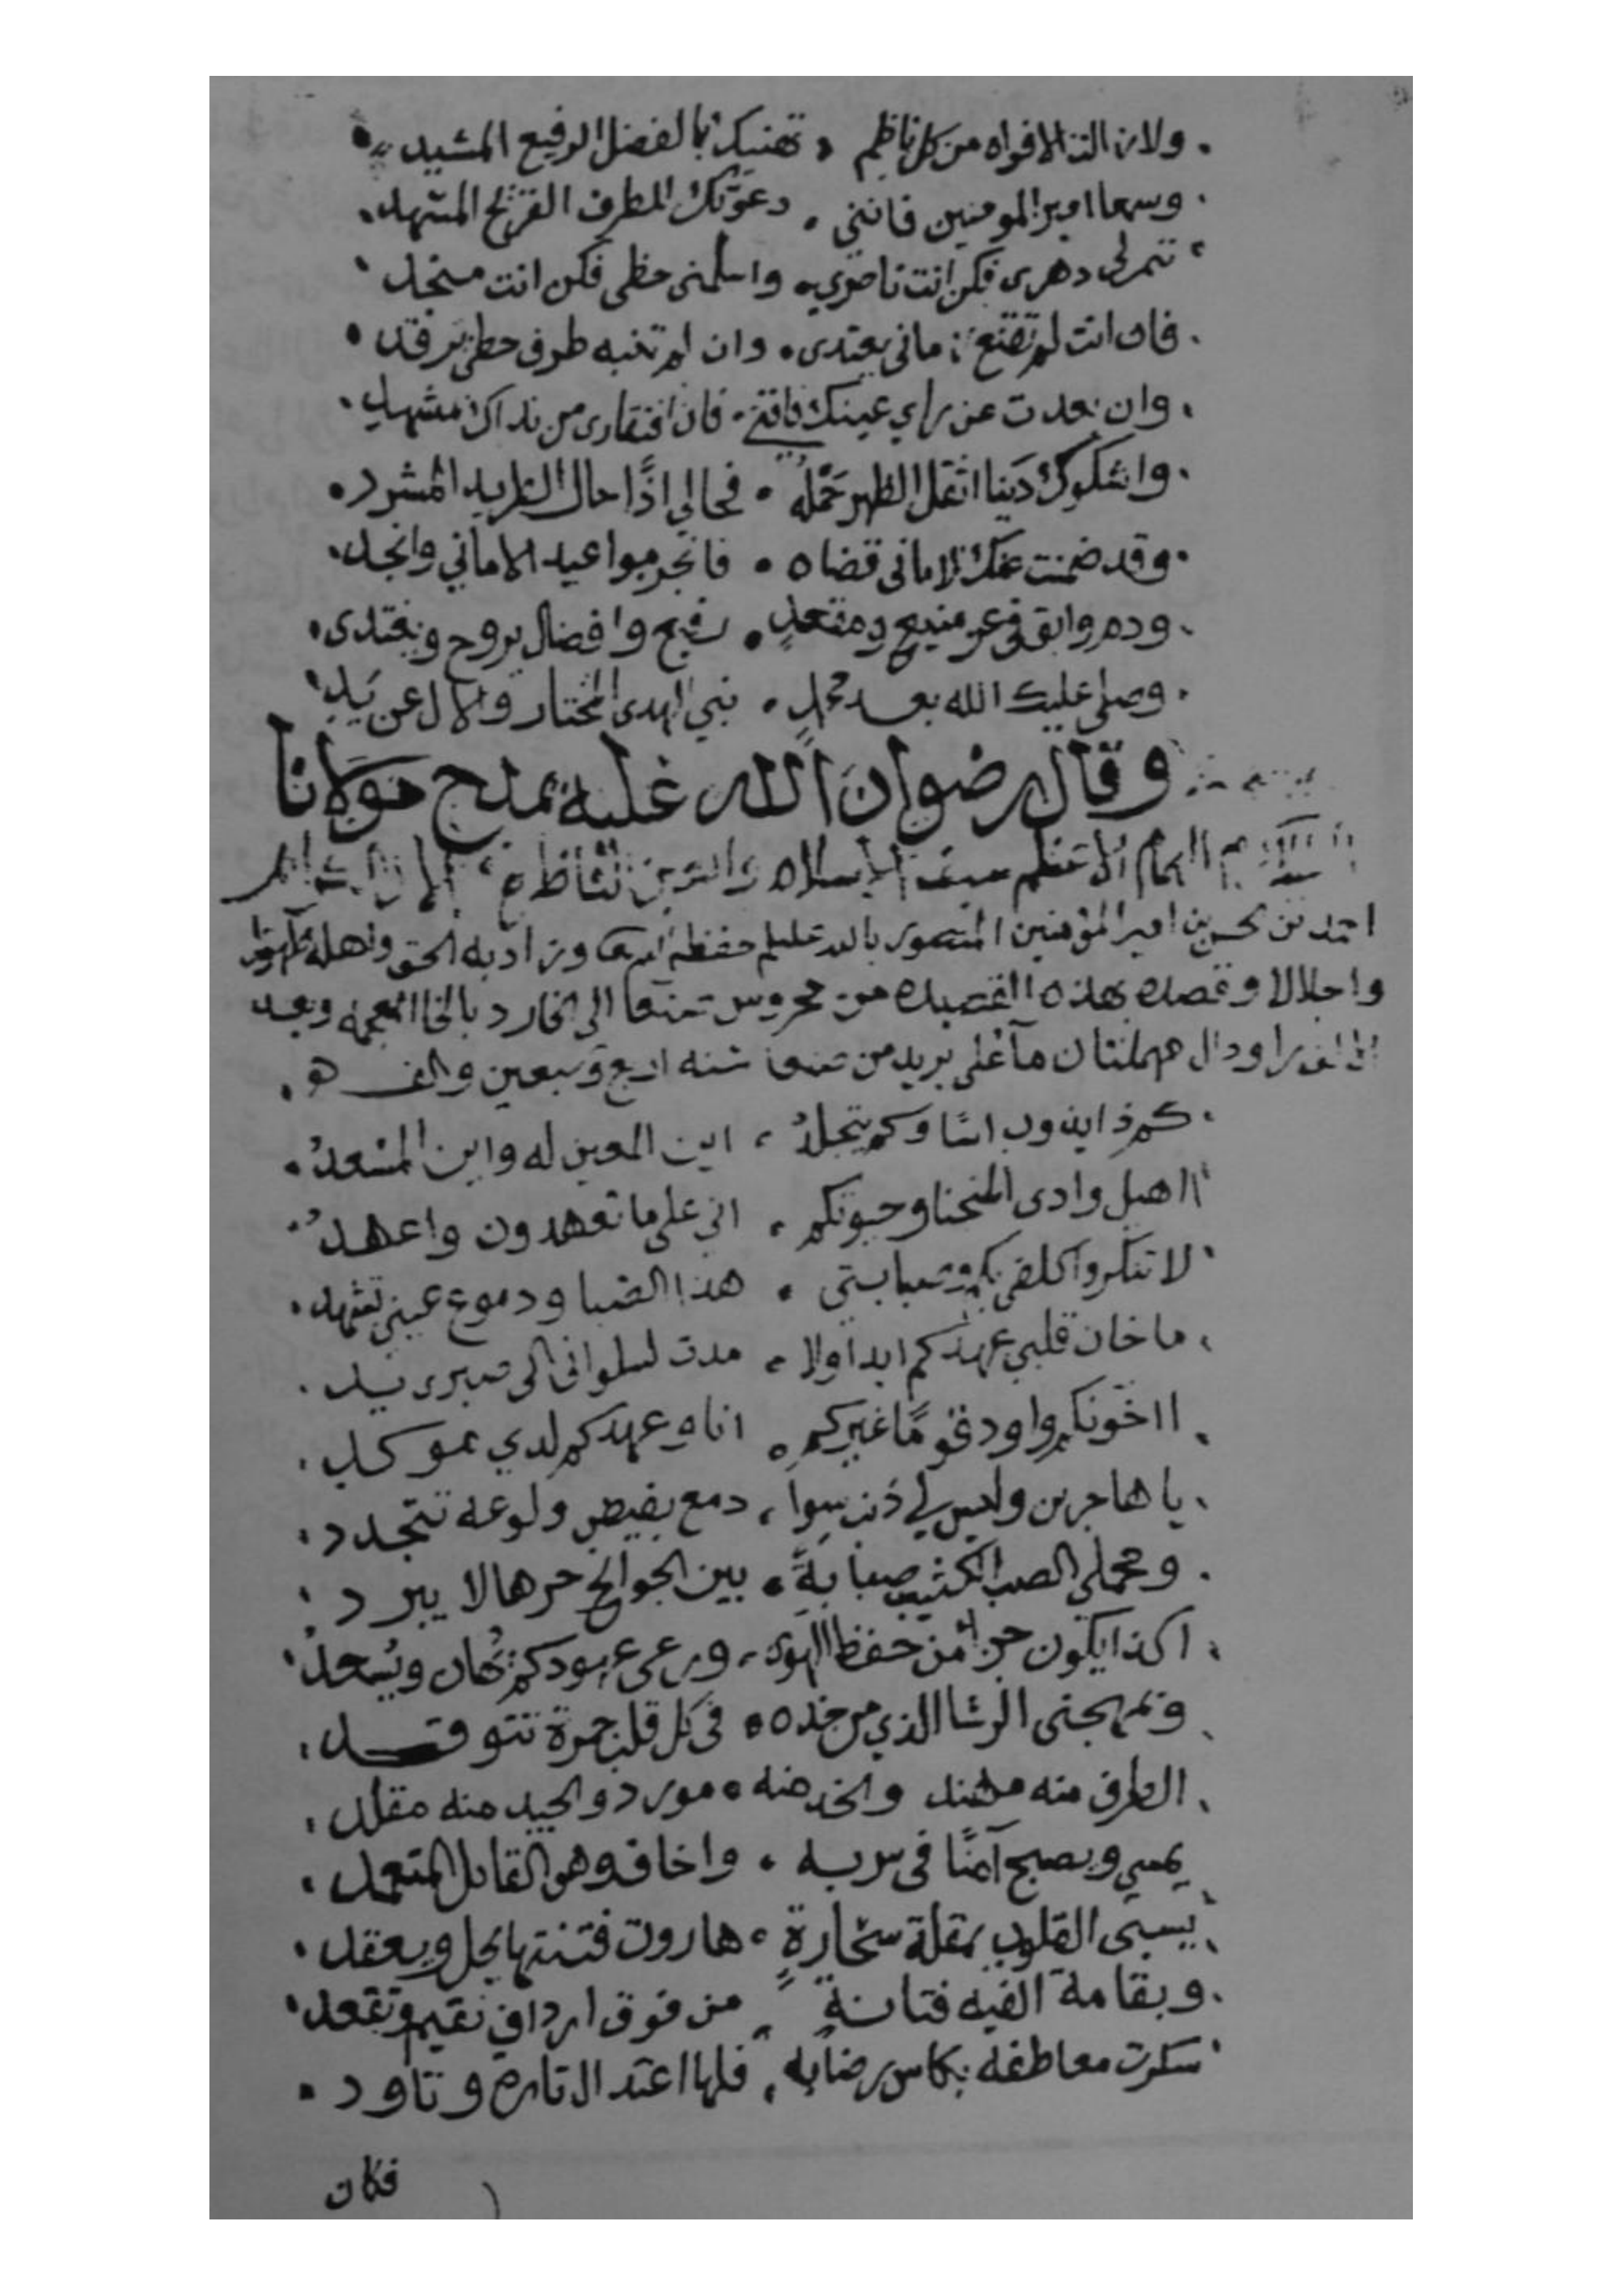 ولا زالت الافواه من كل ناظم ، تهنيك بالفضل الرفيع المشيد
وسمعا امير المومنين فانني . دعوتك للطرف القريح المسهد
تنمر لي دهرى فكن انت ناصري . واسلمنى حظى فكن انت منجد
فان انت لم تقنع زمانى يعتدى . وان لم تنبه طرف حظي يرقد
وان بعدت عن راي عينك فاقتي . فان افتقارى من نداك بمشهد
واشكوك دَينا اثقل الظهر حَمْلهُ . فحالي اذًا حال الطريد المشرد
وقد ضمنت عنك الامانى قضاه . فانجز مواعيد الاماني وانجد
ودم وابق في عز منيع ومقعدٍ . رفيع وافضال يروح ويغتدى
وصلى عليك الله بعد محمد . نبي الهدى المختار والال عن يَدِ
وقال رضوان الله عليه يمدح مولانا
الامام الاعظم سيف الاسلام
احمد بن الحسن بن امير المؤمنين المنصور بالله عليهم حفظه الله وزاد به الحق واهله
واجلالا وقصده بهذه القصيده من محروس صنعا الى الخارد بالخا المعجمه وبعد
الالف را ودال مهملتان ما على بريد من صنعا سنه اربع وسبعين والف هو
كم ذا يذوب اسًا وكم يتجلدُ ، اين المعين له واين المسْعدُ
ااهيل وادى المنحنا وحيوتكم . انى على ما تعهدون واعهدُ
لا تنكروا كلفى بكم وصبابتي . هذا الضنا ودموع عيني تشهد
ما خان قلبي عهدكم ابدا ولا . مدت لسلوانى الى صبرى يد
ااخونكم واود قومًا غيركم . اناه عهدكم لدي موكد
يا هاجرين وليس لي ذنب سوا ، دمع يفيض ولوعه تتجدد
ومحملى الصب الكئيب صبابةً . بين الجوانح حرها لا يبرد
اكذا يكون جزا من حفظ الهوى ، ورعى عهودكم يُخان ويُجحدُ
وبمهجتى الرشا الذي من خده . في كل قلب جمرة تتوقد
الطرف منه مهند والخد منه . مورد والجيد منه مقلد
يمسي ويصبح آمنًا فى سربه . واخافه وهو القاتل المتعمد
يسبى القلوب بمقلة سحّارةٍ . هاروت فتنتها يحل ويعقد
وبقامة الفيه فتانةٍ ، من فوق ارداف تقيم وتقعد
سكرت معاطفه بكاس رضابه ، فلها اعتدال تارة وتاود
فكان